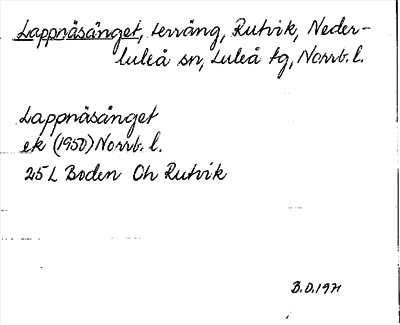 Lappnäsänget, terräng, Rutvik, Neder-
luleå sn, Luleå tg, Norrb. l.
Lappnäsänget
ek (1950) Norrb. l.
25 L Boden Öh Rutvik
B.D. 1971